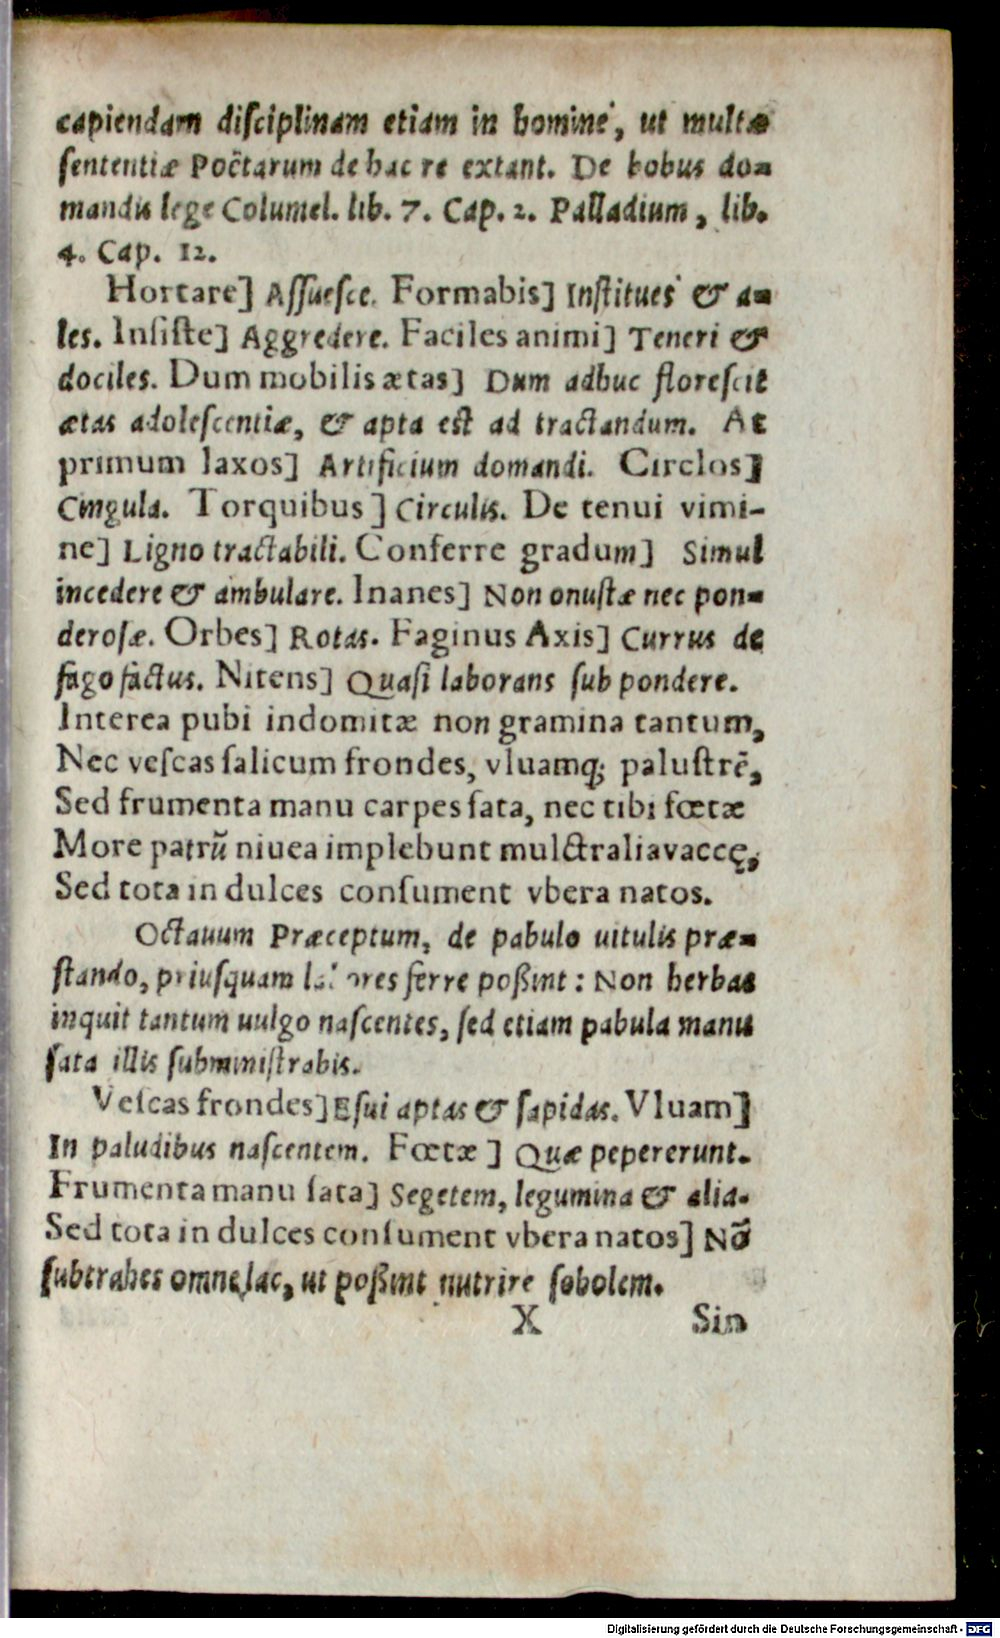 capiendam disciplinam etiam in homine, ut multæ
sententiæ Poëtarum de hac re extant. De bobus do-
mandis lege Columel. lib. 7. Cap. 2. Palladium, lib.
4. Cap. 12.
Hortare] Aſſueſce. Formabis] Inſtitues & a-
les. Inſiſte] Aggredere. Faciles animi] Teneri &
dociles. Dum mobilis ætas] Dum adhuc floreſcit
ætas adoleſcentiæ, & apta eſt ad tractandum. Ac
primum laxos] Artificium domandi. Circlos]
Cingula. Torquibus] Circulis. De tenui vimi-
ne] Ligno tractabili. Conferre gradum] Simul
incedere & ambulare. Inanes] Non onuſtæ nec pon-
deroſæ. Orbes] Rotas. Faginus Axis] Currus de
fago factus. Nitens] Quaſi laborans ſub pondere.
Interea pubi indomitæ non gramina tantum,
Nec veſcas ſalicum frondes, vluamq; paluſtrē,
Sed frumenta manu carpes ſata, nec tibi fœtæ
More patrũ niuea implebunt mulctralia vaccę,
Sed tota in dulces conſument vbera natos.
Octauum Præceptum, de pabulo uitulis præ-
ſtando, priuſquam ferre poßint: Non herbas
inquit tantum uulgo naſcentes, ſed etiam pabula manu
ſata illis ſubminiſtrabis.
Veſcas frondes] Eſui aptas & ſapidas. Vluam]
In paludibus naſcentem. Fœtæ] Quæ pepererunt.
Frumenta manu ſata] Segetem, legumina & alia.
Sed tota in dulces conſument vbera natos] Nõ
ſubtrahes omne lac, ut poßint nutrire ſobolem.
X Sin
Digitalisierung gefördert durch die Deutsche Forschungsgemeinschaft - DFG